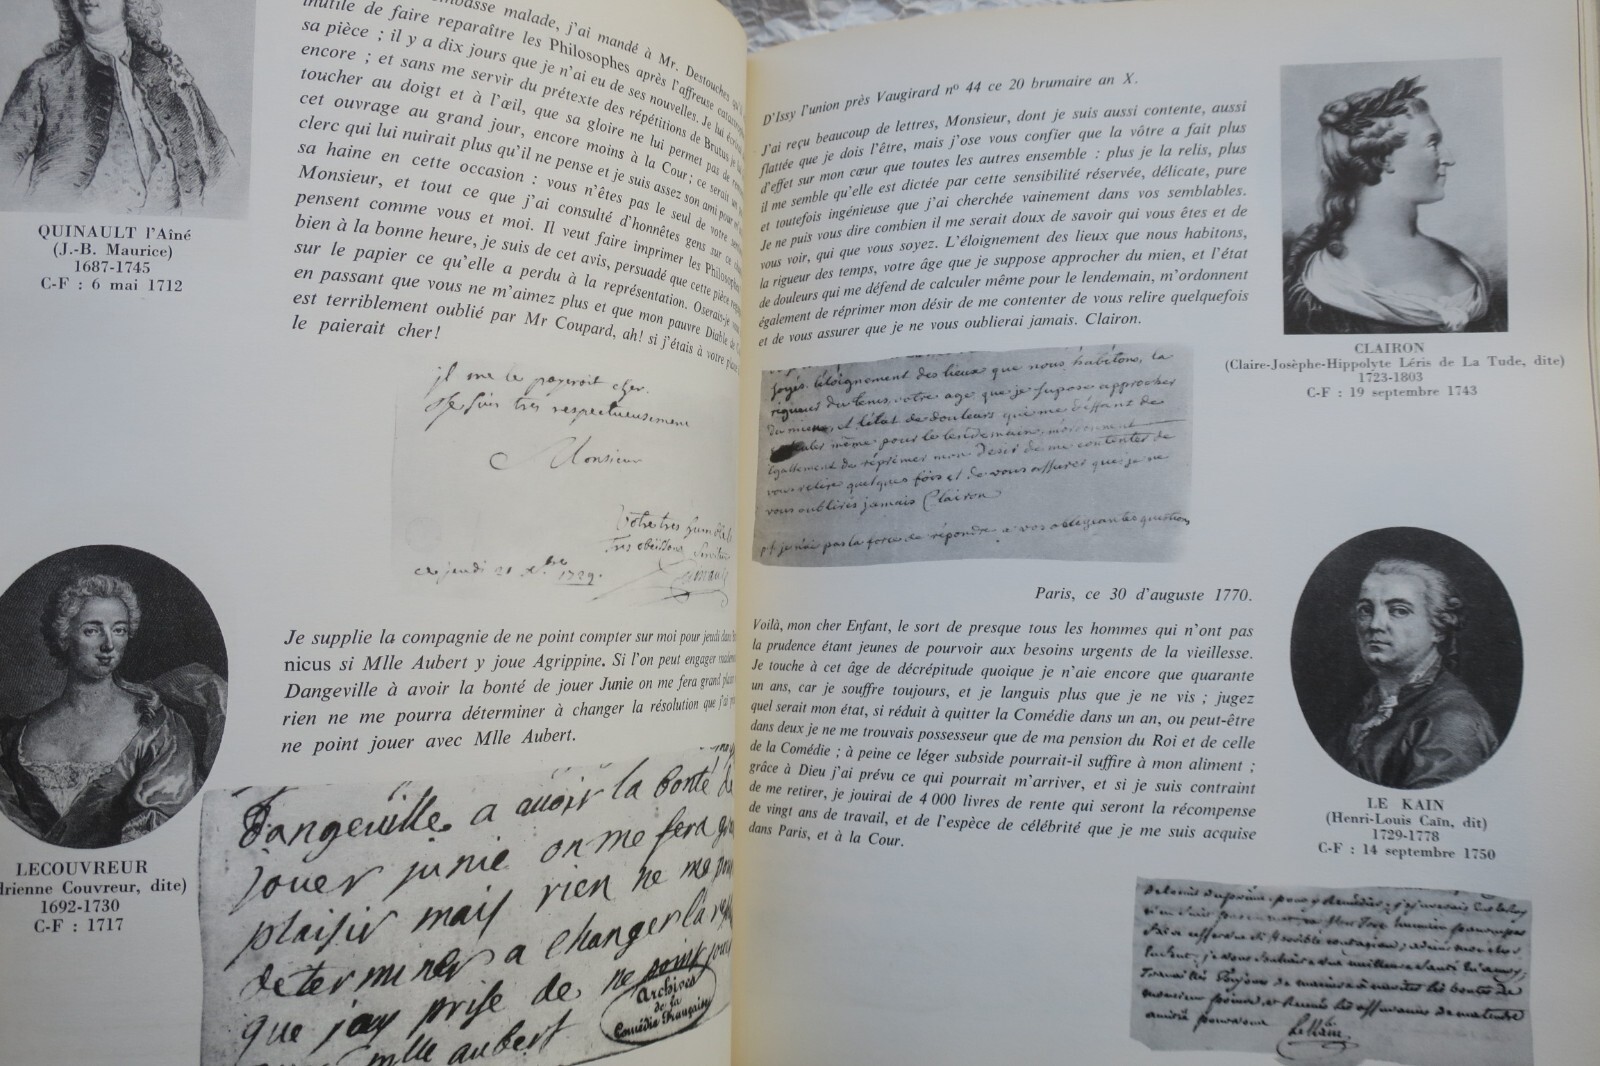 malade, j'ai mandé à Mr. Destouches qu'il
inutile de faire reparaître les Philosophes après l'affreuse
sa pièce ; il y a dix jours que je n'ai eu de ses nouvelles. Je lui
encore ; et sans me servir du prétexte des répétitions de Brutus je
toucher au doigt et à l'œil, que sa gloire ne lui permet pas de
cet ouvrage au grand jour, encore moins à la Cour ; ce serait un
clerc qui lui nuirait plus qu'il ne pense et je suis assez son ami pour
sa haine en cette occasion : vous n'êtes pas le seul de votre
Monsieur, et tout ce que j'ai consulté d'honnêtes gens sur ce
pensent comme vous et moi. Il veut faire imprimer les Philosophes
bien à la bonne heure, je suis de cet avis, persuadé que cette pièce
sur le papier ce qu'elle a perdu à la représentation. Oserais-je
en passant que vous ne m'aimez plus et que mon pauvre Diable de
est terriblement oublié par Mr Coupard, ah! si j'étais à votre place
le paierait cher!
QUINAULT l'Aîné
(J.-B. Maurice)
1687-1745
C-F : 6 mai 1712
il me le payeroit cher.
Je suis tres respectueusement
Monsieur
Votre tres humble
tres obeissant Serviteur
ce jeudi 21 xbre 1729.
Je supplie la compagnie de ne point compter sur moi pour jeudi dans
nicus si Mlle Aubert y joue Agrippine. Si l'on peut engager
Dangeville à avoir la bonté de jouer Junie on me fera grand
rien ne me pourra déterminer à changer la résolution que j'ai
ne point jouer avec Mlle Aubert.
LECOUVREUR
drienne Couvreur, dite)
1692-1730
C-F : 1717
Dangeville a avoir la bonté de
jouer junie on me fera
plaisir mais rien ne me
determiner a changer la
que jay prise de ne point
mlle aubert
Archives
de la
Comédie Française
D'Issy l'union près Vaugirard nº 44 ce 20 brumaire an X.
J'ai reçu beaucoup de lettres, Monsieur, dont je suis aussi contente, aussi
flattée que je dois l'être, mais j'ose vous confier que la vôtre a fait plus
d'effet sur mon cœur que toutes les autres ensemble : plus je la relis, plus
il me semble qu'elle est dictée par cette sensibilité réservée, délicate, pure
et toutefois ingénieuse que j'ai cherchée vainement dans vos semblables.
Je ne puis vous dire combien il me serait doux de savoir qui vous êtes et de
vous voir, qui que vous soyez. L'éloignement des lieux que nous habitons,
la rigueur des temps, votre âge que je suppose approcher du mien, et l'état
de douleurs qui me défend de calculer même pour le lendemain, m'ordonnent
également de réprimer mon désir de me contenter de vous relire quelquefois
et de vous assurer que je ne vous oublierai jamais. Clairon.
CLAIRON
(Claire-Josèphe-Hippolyte Léris de La Tude, dite)
1723-1803
C-F : 19 septembre 1743
soyés. l'éloignement des lieux que nous habitons, la
rigueur du tems, votre age que je supose approcher
du mien, et l'état de douleurs qui me deffant de
même pour le lendemain, m'ordonnent
égallement de réprimer mon desir de me contenter de
vous relire quelques fois et de vous assurer que je ne
vous oublirés jamais Clairon
je n'ai pas la force de répondre a vos obligeantes questions
Paris, ce 30 d'auguste 1770.
Voilà, mon cher Enfant, le sort de presque tous les hommes qui n'ont pas
la prudence étant jeunes de pourvoir aux besoins urgents de la vieillesse.
Je touche à cet âge de décrépitude quoique je n'aie encore que quarante
un ans, car je souffre toujours, et je languis plus que je ne vis ; jugez
quel serait mon état, si réduit à quitter la Comédie dans un an, ou peut-être
dans deux je ne me trouvais possesseur que de ma pension du Roi et de celle
de la Comédie ; à peine ce léger subside pourrait-il suffire à mon aliment ;
grâce à Dieu j'ai prévu ce qui pourrait m'arriver, et si je suis contraint
de me retirer, je jouirai de 4 000 livres de rente qui seront la récompense
de vingt ans de travail, et de l'espèce de célébrité que je me suis acquise
dans Paris, et à la Cour.
LE KAIN
(Henri-Louis Caïn, dit)
1729-1778
C-F : 14 septembre 1750
Lekain